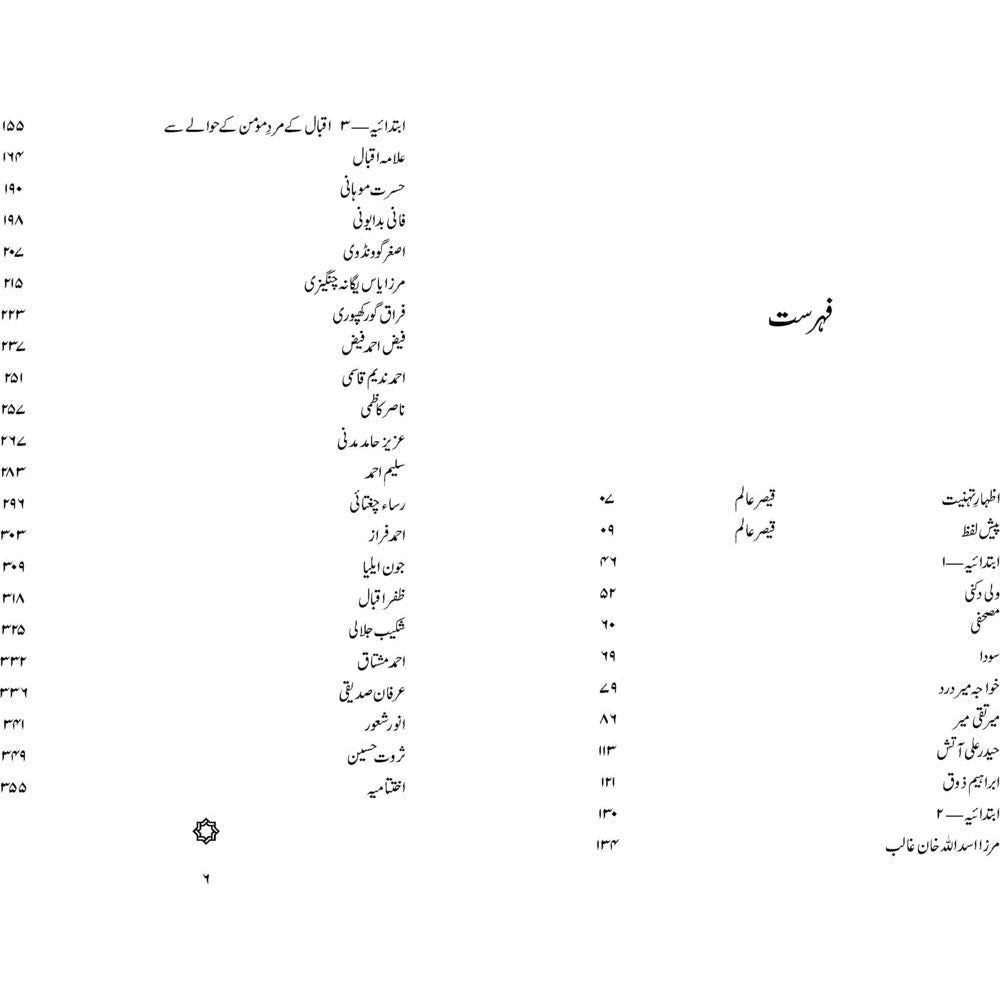 فہرست
اظہارِ تہنیت قیصر عالم ۰۷
پیش لفظ قیصر عالم ۰۹
ابتدائیہ—۱ ۴۶
ولی دکنی ۵۲
مصحفی ۶۰
سودا ۶۹
خواجہ میر درد ۷۹
میر تقی میر ۸۶
حیدر علی آتش ۱۱۳
ابراہیم ذوق ۱۲۱
ابتدائیہ—۲ ۱۳۰
مرزا اسد اللہ خان غالب ۱۳۴
ابتدائیہ—۳ اقبال کے مردِ مومن کے حوالے سے ۱۵۵
علامہ اقبال ۱۶۴
حسرت موہانی ۱۹۰
فانی بدایونی ۱۹۸
اصغر گوونڈوی ۲۰۷
مرزا یاس یگانہ چنگیزی ۲۱۵
فراق گورکھپوری ۲۲۳
فیض احمد فیض ۲۳۷
احمد ندیم قاسمی ۲۵۱
ناصر کاظمی ۲۵۷
عزیز حامد مدنی ۲۶۷
سلیم احمد ۲۸۳
رساء چغتائی ۲۹۶
احمد فراز ۳۰۳
جون ایلیا ۳۰۹
ظفر اقبال ۳۱۸
شکیب جلالی ۳۲۵
احمد مشتاق ۳۳۲
عرفان صدیقی ۳۳۶
انور شعور ۳۴۱
ثروت حسین ۳۴۹
اختتامیہ ۳۵۵
۶